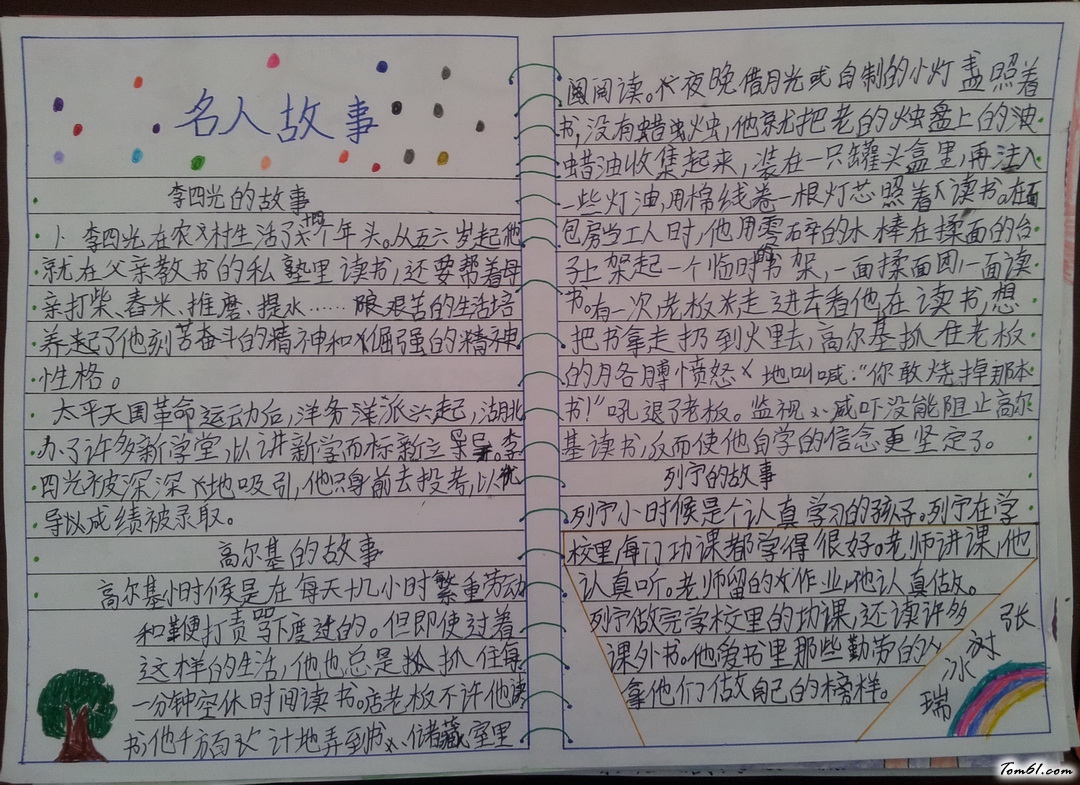 名人故事
李四光的故事
1、李四光在农村生活了十四个年头。从五六岁起他
就在父亲教书的私塾里读书,还要帮着母
亲打柴、舂米、推磨、提水……艰苦的生活培
养起了他刻苦奋斗的精神和倔强的精神
性格。
太平天国革命运动后,洋务洋派兴起,湖北
办了许多新学堂,以讲新学而标新立导。李
四光被深深地吸引,他只身前去投考,以优
导以成绩被录取。
高尔基的故事
高尔基小时候是在每天十几小时繁重劳动
和鞭打责骂下度过的。但即使过着
这样的生活,他也总是抓住每
一分钟空休时间读书。店老板不许他读
书,他千方百计地弄到书、储藏室里
阅读。夜晚借月光或自制的小灯盏照着
书,没有蜡烛,他就把老的烛盘上的油
蜡油收集起来,装在一只罐头盒里,再注入
一些灯油,用棉线卷一根灯芯照着读书。在面
包房当工人时,他用零碎的木棒在揉面的台
子上架起一个临时书架,一面揉面团,一面读
书。有一次,老板走进去看他在读书,想
把书拿走扔到火里去,高尔基抓住老板
的胳膊愤怒地叫喊:“你敢烧掉那本
书!”吼退了老板。监视、威吓没能阻止高尔
基读书,反而使他自学的信念更坚定了。
列宁的故事
列宁小时候是个认真学习的孩子。列宁在学
校里每门功课都学得很好。老师讲课,他
认真听。老师留的作业,他认真做。
列宁做完学校里的功课,还读许多
课外书。他爱书里那些勤劳的人
拿他们做自己的榜样。
张
树
冰
瑞
Tom61.com